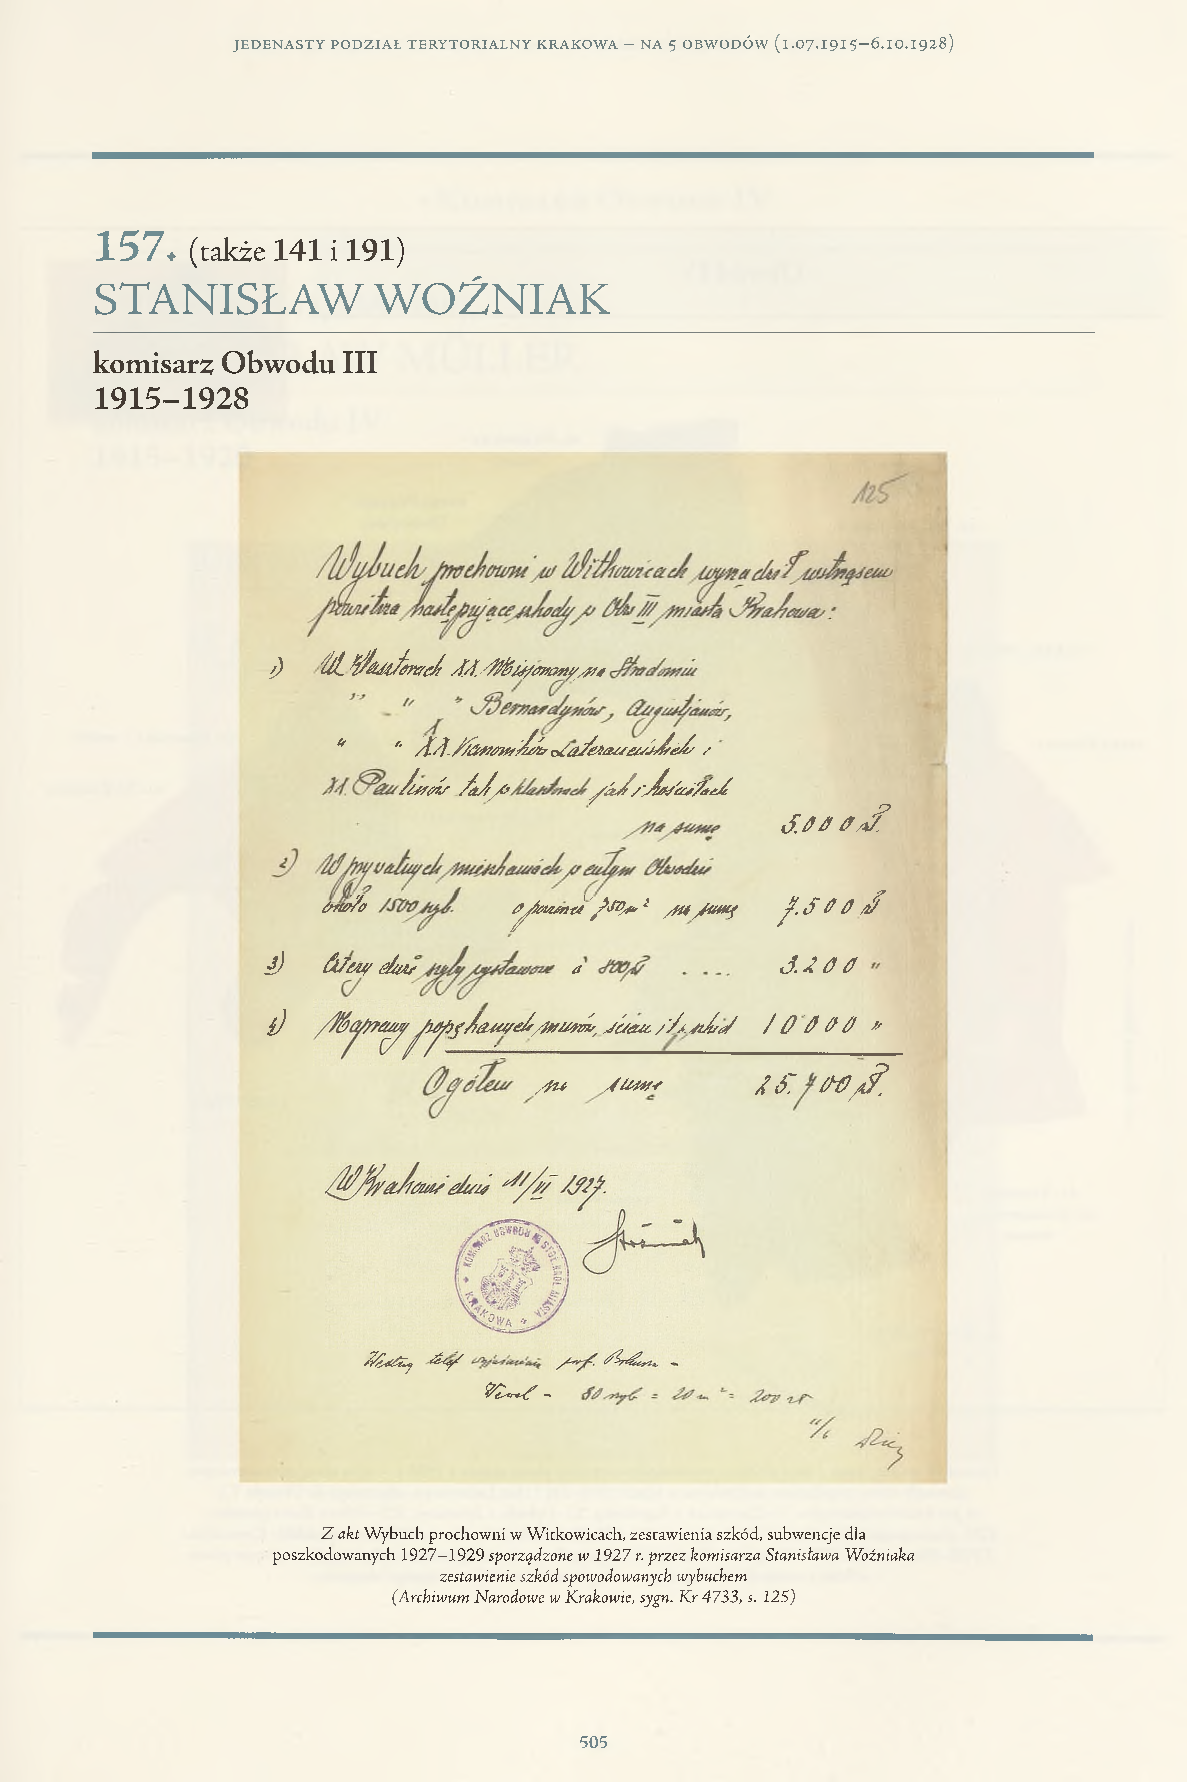 JEDENASTY PODZIAŁ TERYTORIALNY KRAKOWA – NA 5 OBWODÓW (1.07.1915–6.10.1928)
157. (także 141 i 191)
STANISŁAW WOŹNIAK
komisarz Obwodu III
1915–1928
125
Wybuch prochowni w Witkowicach wyrządził wstrząsem
powietrza następujące szkody w Obw III miasta Krakowa:
1) W Klasztorach XX. Misjonarzy na Stradomiu
" " " Bernardynów, Augustjanów,
" " XX. Kanoników Laterańskich i
XX. Paulinów tak w klasztorach jak i kościołach
na sumę 5.000 zł.
2) W prywatnych mieszkaniach w całym Obwodzie
około 1500 szyb. o powierz 750 m² na sumę 7.500 zł
3) Cztery duże szyby wystawowe à 800 zł .... 3.200 "
4) Naprawy popękanych murów, ścian i t.p. szkód 10000 "
Ogółem na sumę 25.700 zł.
W Krakowie dnia 11/VI 1927.
Woźniak
KOMISARZ OBWODU III STOŁ. KRÓL. MIASTA KRAKOWA
Według telef wyjaśnienia prof.
Wawel – 80 szyb = 20 m² = 200 zł
11/6
Z akt Wybuch prochowni w Witkowicach, zestawienia szkód, subwencje dla
poszkodowanych 1927–1929 sporządzone w 1927 r. przez komisarza Stanisława Woźniaka
zestawienie szkód spowodowanych wybuchem
(Archiwum Narodowe w Krakowie, sygn. Kr 4733, s. 125)
505